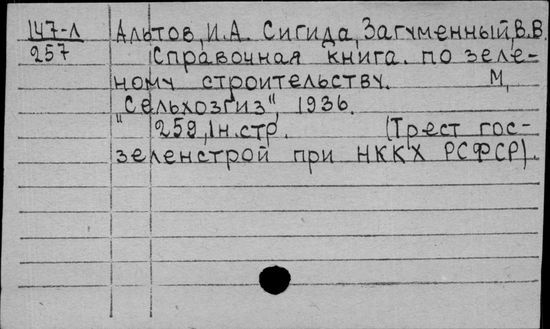 147-Л Альтов, И.А. Сигида, Загуменный, В.В.
257 Справочная книга. по зеле-
ному строительству. М,
"Сельхозгиз", 1936.
259, 1н.стр. (Трест гос-
зеленстрой при НККХ РСФСР).